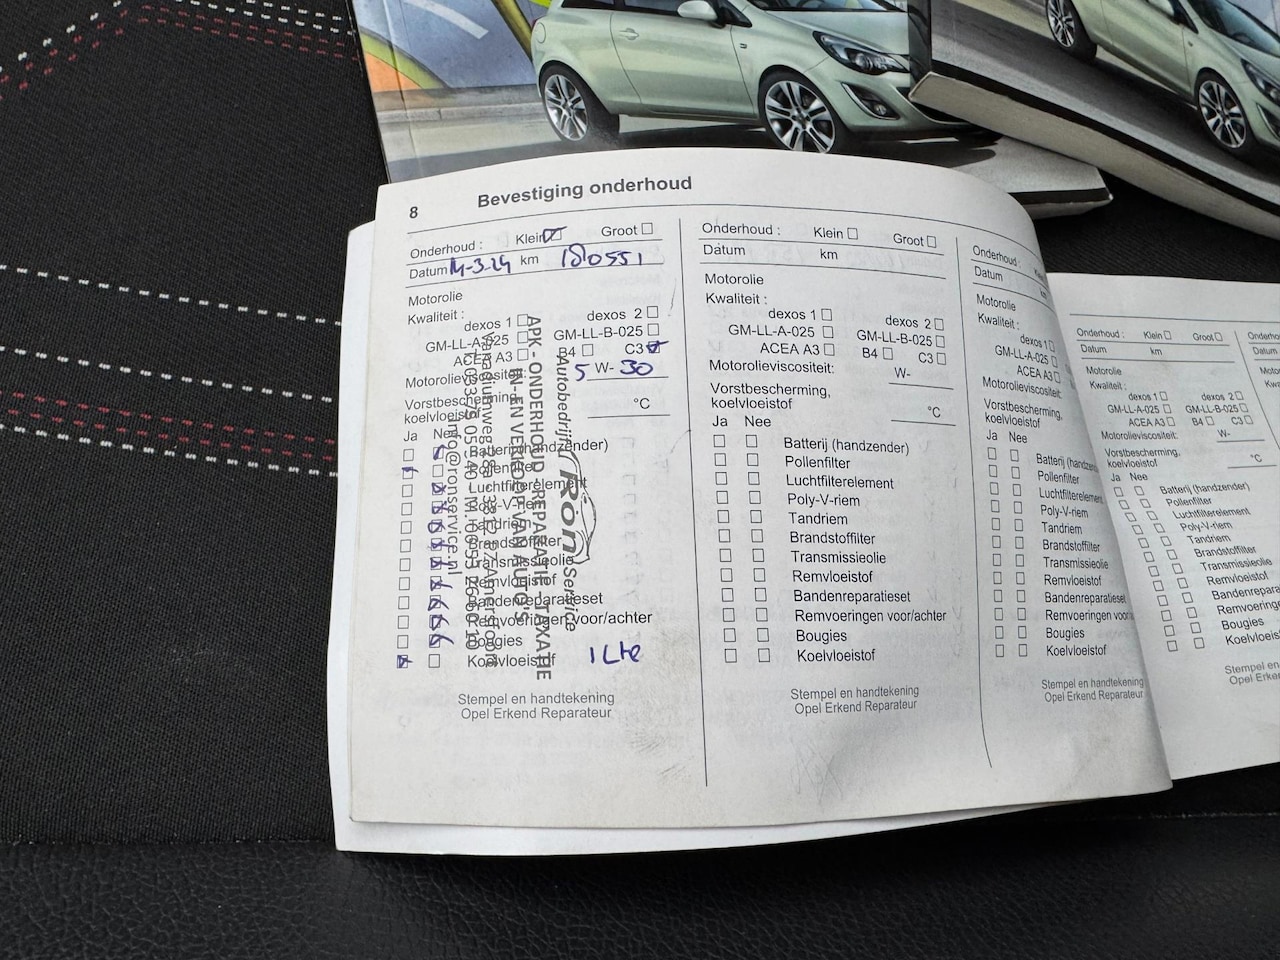 8 Bevestiging onderhoud
Onderhoud : Klein Groot
Datum 14-3-24 km 180551
Motorolie
Kwaliteit :
dexos 1 dexos 2
GM-LL-A-025 GM-LL-B-025
ACEA A3 B4 C3
Motorolieviscositeit: 5 W- 30
Vorstbescherming,
koelvloeistof °C
Ja Nee
Batterij (handzender)
Pollenfilter
Luchtfilterelement
Poly-V-riem
Tandriem
Brandstoffilter
Transmissieolie
Remvloeistof
Bandenreparatieset
Remvoeringen voor/achter
Bougies
Koelvloeistof 1 Lte
Stempel en handtekening
Opel Erkend Reparateur
Autobedrijf Ron Service
APK - ONDERHOUD - REPARATIE - TAXATIE
IN- EN VERKOOP VAN AUTO'S
info@ronservice.nl
Onderhoud : Klein Groot
Datum km
Motorolie
Kwaliteit :
dexos 1 dexos 2
GM-LL-A-025 GM-LL-B-025
ACEA A3 B4 C3
Motorolieviscositeit: W-
Vorstbescherming,
koelvloeistof °C
Ja Nee
Batterij (handzender)
Pollenfilter
Luchtfilterelement
Poly-V-riem
Tandriem
Brandstoffilter
Transmissieolie
Remvloeistof
Bandenreparatieset
Remvoeringen voor/achter
Bougies
Koelvloeistof
Stempel en handtekening
Opel Erkend Reparateur
Onderhoud :
Datum
Motorolie
Kwaliteit :
dexos 1
GM-LL-A-025
ACEA A3
Motorolieviscositeit:
Vorstbescherming,
koelvloeistof
Ja Nee
Batterij (handzender
Pollenfilter
Luchtfilterelement
Poly-V-riem
Tandriem
Brandstoffilter
Transmissieolie
Remvloeistof
Bandenreparatieset
Remvoeringen voor
Bougies
Koelvloeistof
Stempel en handtekening
Opel Erkend Reparateur
Onderhoud : Klein Groot
Datum km
Motorolie
Kwaliteit :
dexos 1 dexos 2
GM-LL-A-025 GM-LL-B-025
ACEA A3 B4 C3
Motorolieviscositeit: W-
Vorstbescherming,
koelvloeistof °C
Ja Nee
Batterij (handzender)
Pollenfilter
Luchtfilterelement
Poly-V-riem
Tandriem
Brandstoffilter
Transmissieolie
Remvloeistof
Bandenrepara
Remvoering
Bougies
Koelvloeis
Stempel en
Opel Erke
Onderho
Datum
Motorolie
Kwaliteit